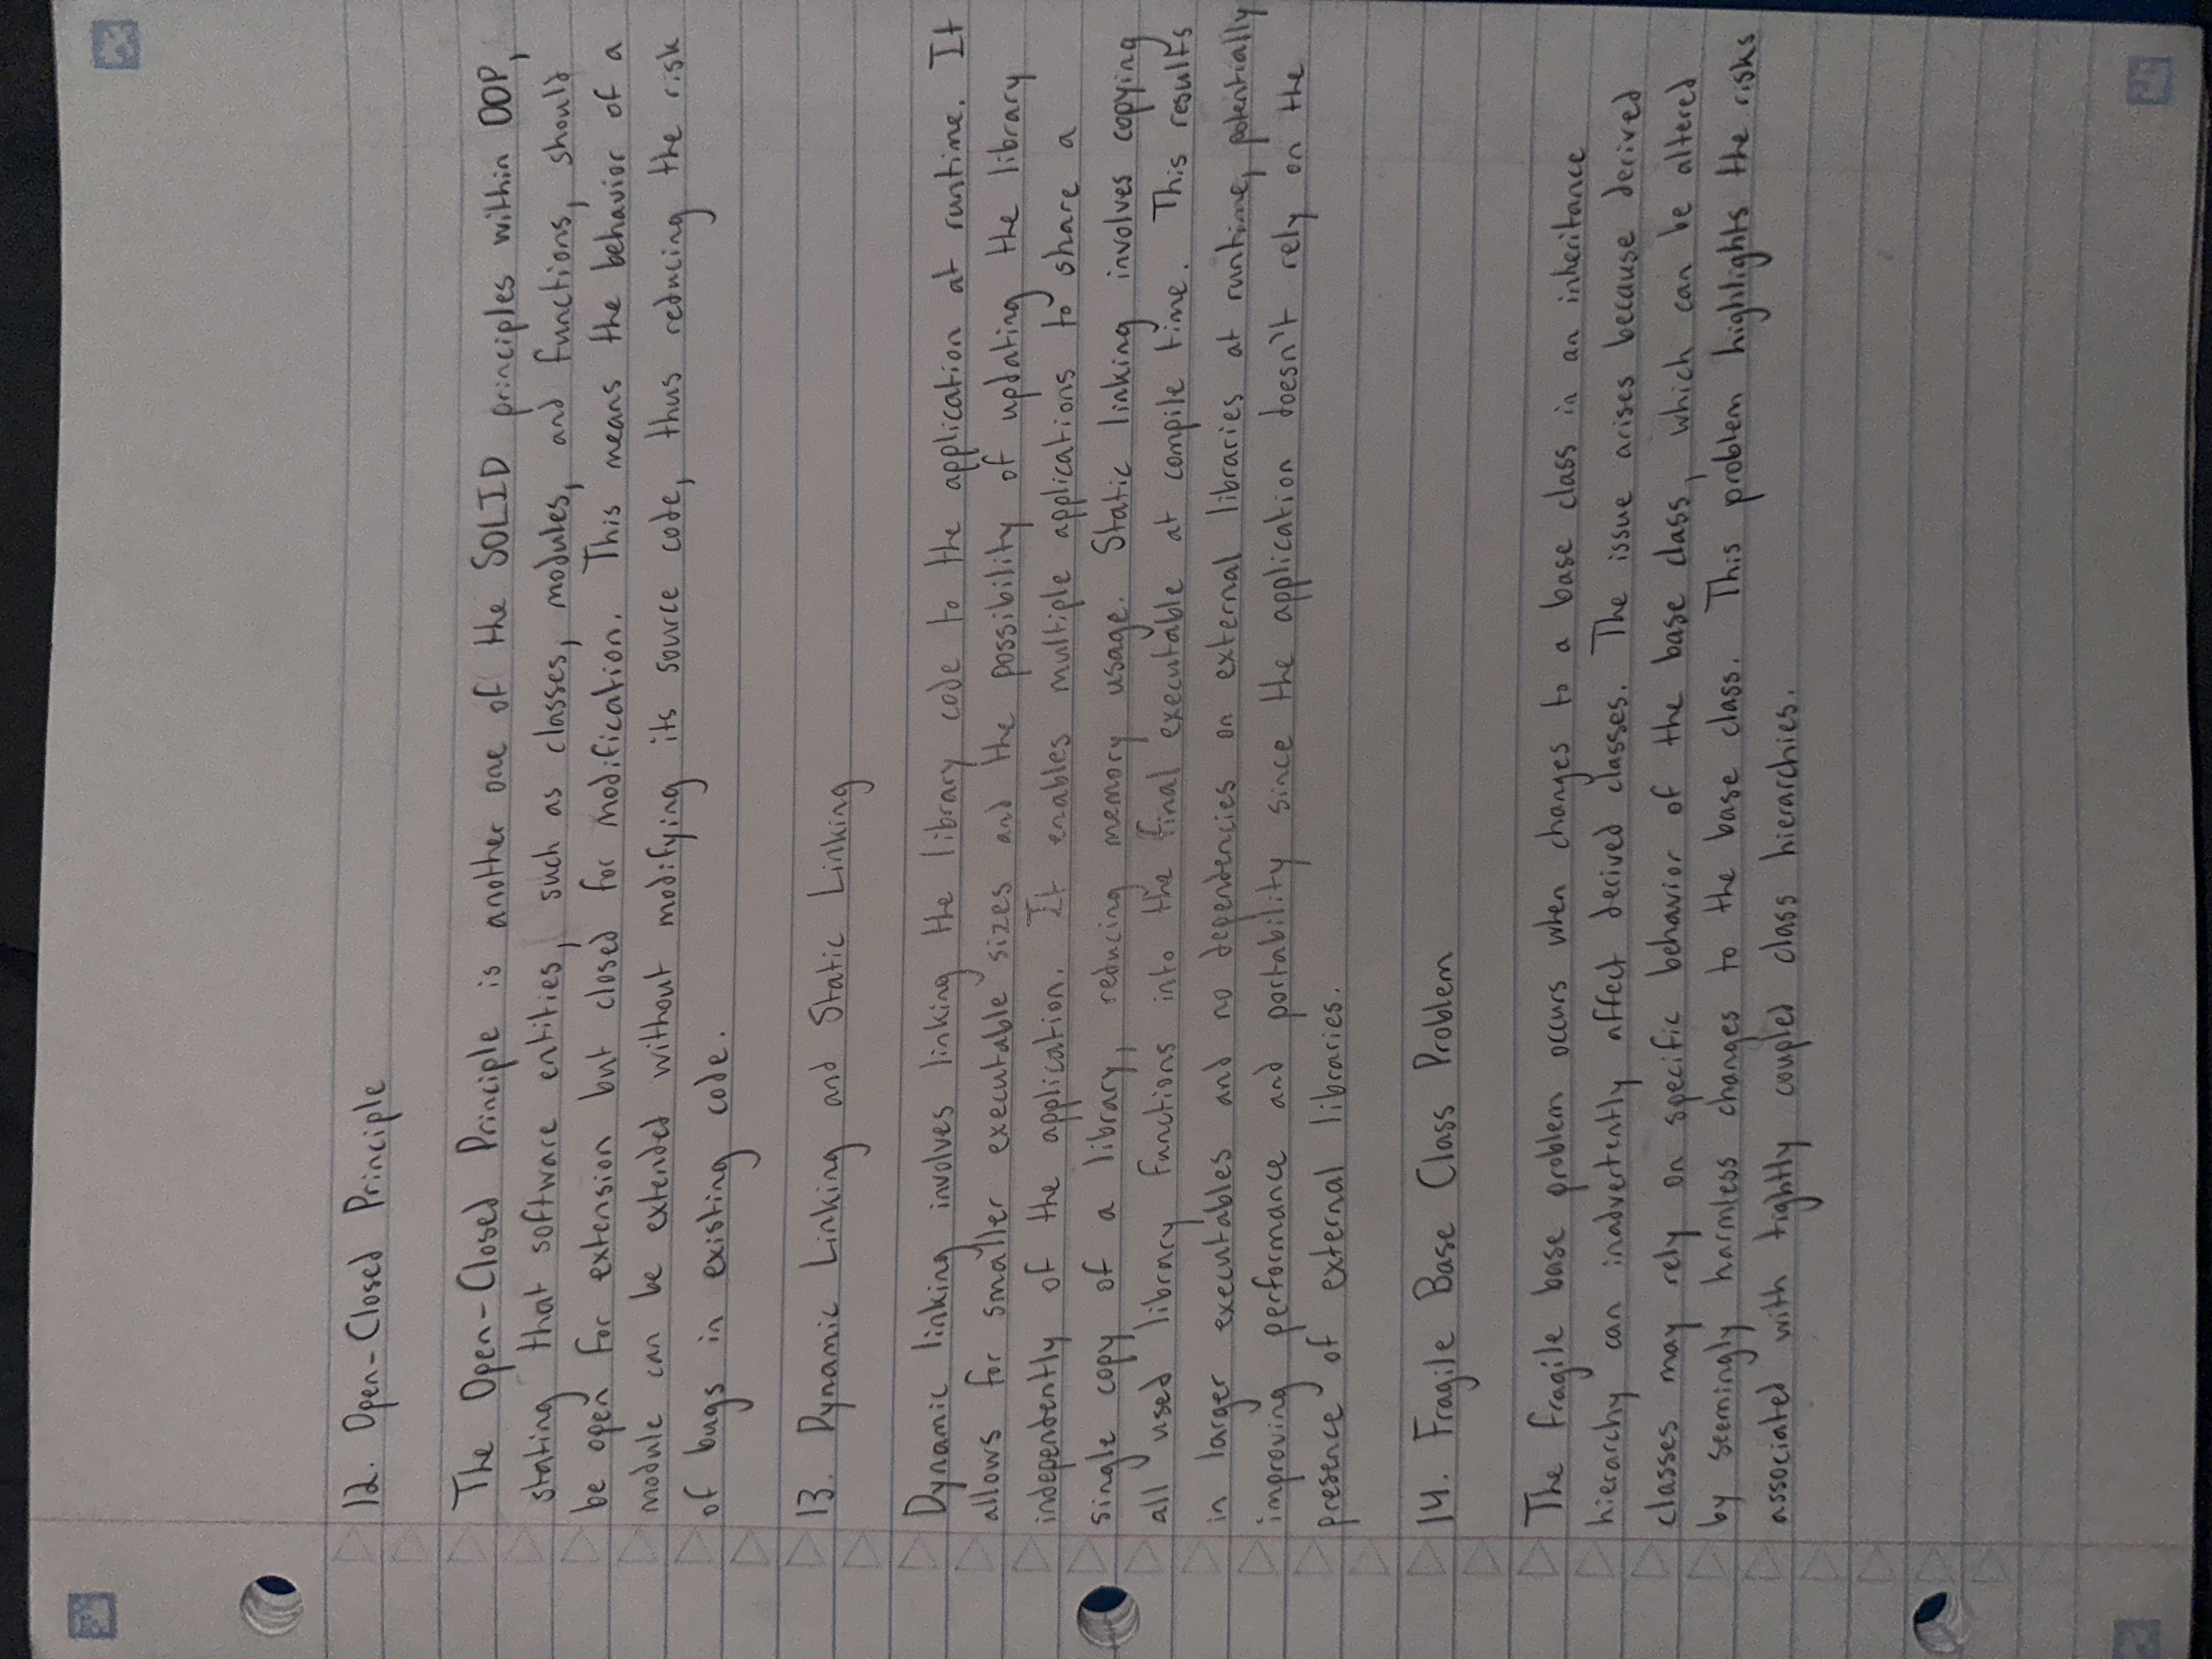 12. Open-Closed Principle
The Open-Closed Principle is another one of the SOLID principles within OOP,
stating that software entities, such as classes, modules, and functions, should
be open for extension but closed for modification. This means the behavior of a
module can be extended without modifying its source code, thus reducing the risk
of bugs in existing code.
13. Dynamic Linking and Static Linking
Dynamic linking involves linking the library code to the application at runtime. It
allows for smaller executable sizes and the possibility of updating the library
independently of the application. It enables multiple applications to share a
single copy of a library, reducing memory usage. Static linking involves copying
all used library functions into the final executable at compile time. This results
in larger executables and no dependencies on external libraries at runtime, potentially
improving performance and portability since the application doesn't rely on the
presence of external libraries.
14. Fragile Base Class Problem
The fragile base problem occurs when changes to a base class in an inheritance
hierarchy can inadvertently affect derived classes. The issue arises because derived
classes may rely on specific behavior of the base class, which can be altered
by seemingly harmless changes to the base class. This problem highlights the risks
associated with tightly coupled class hierarchies.